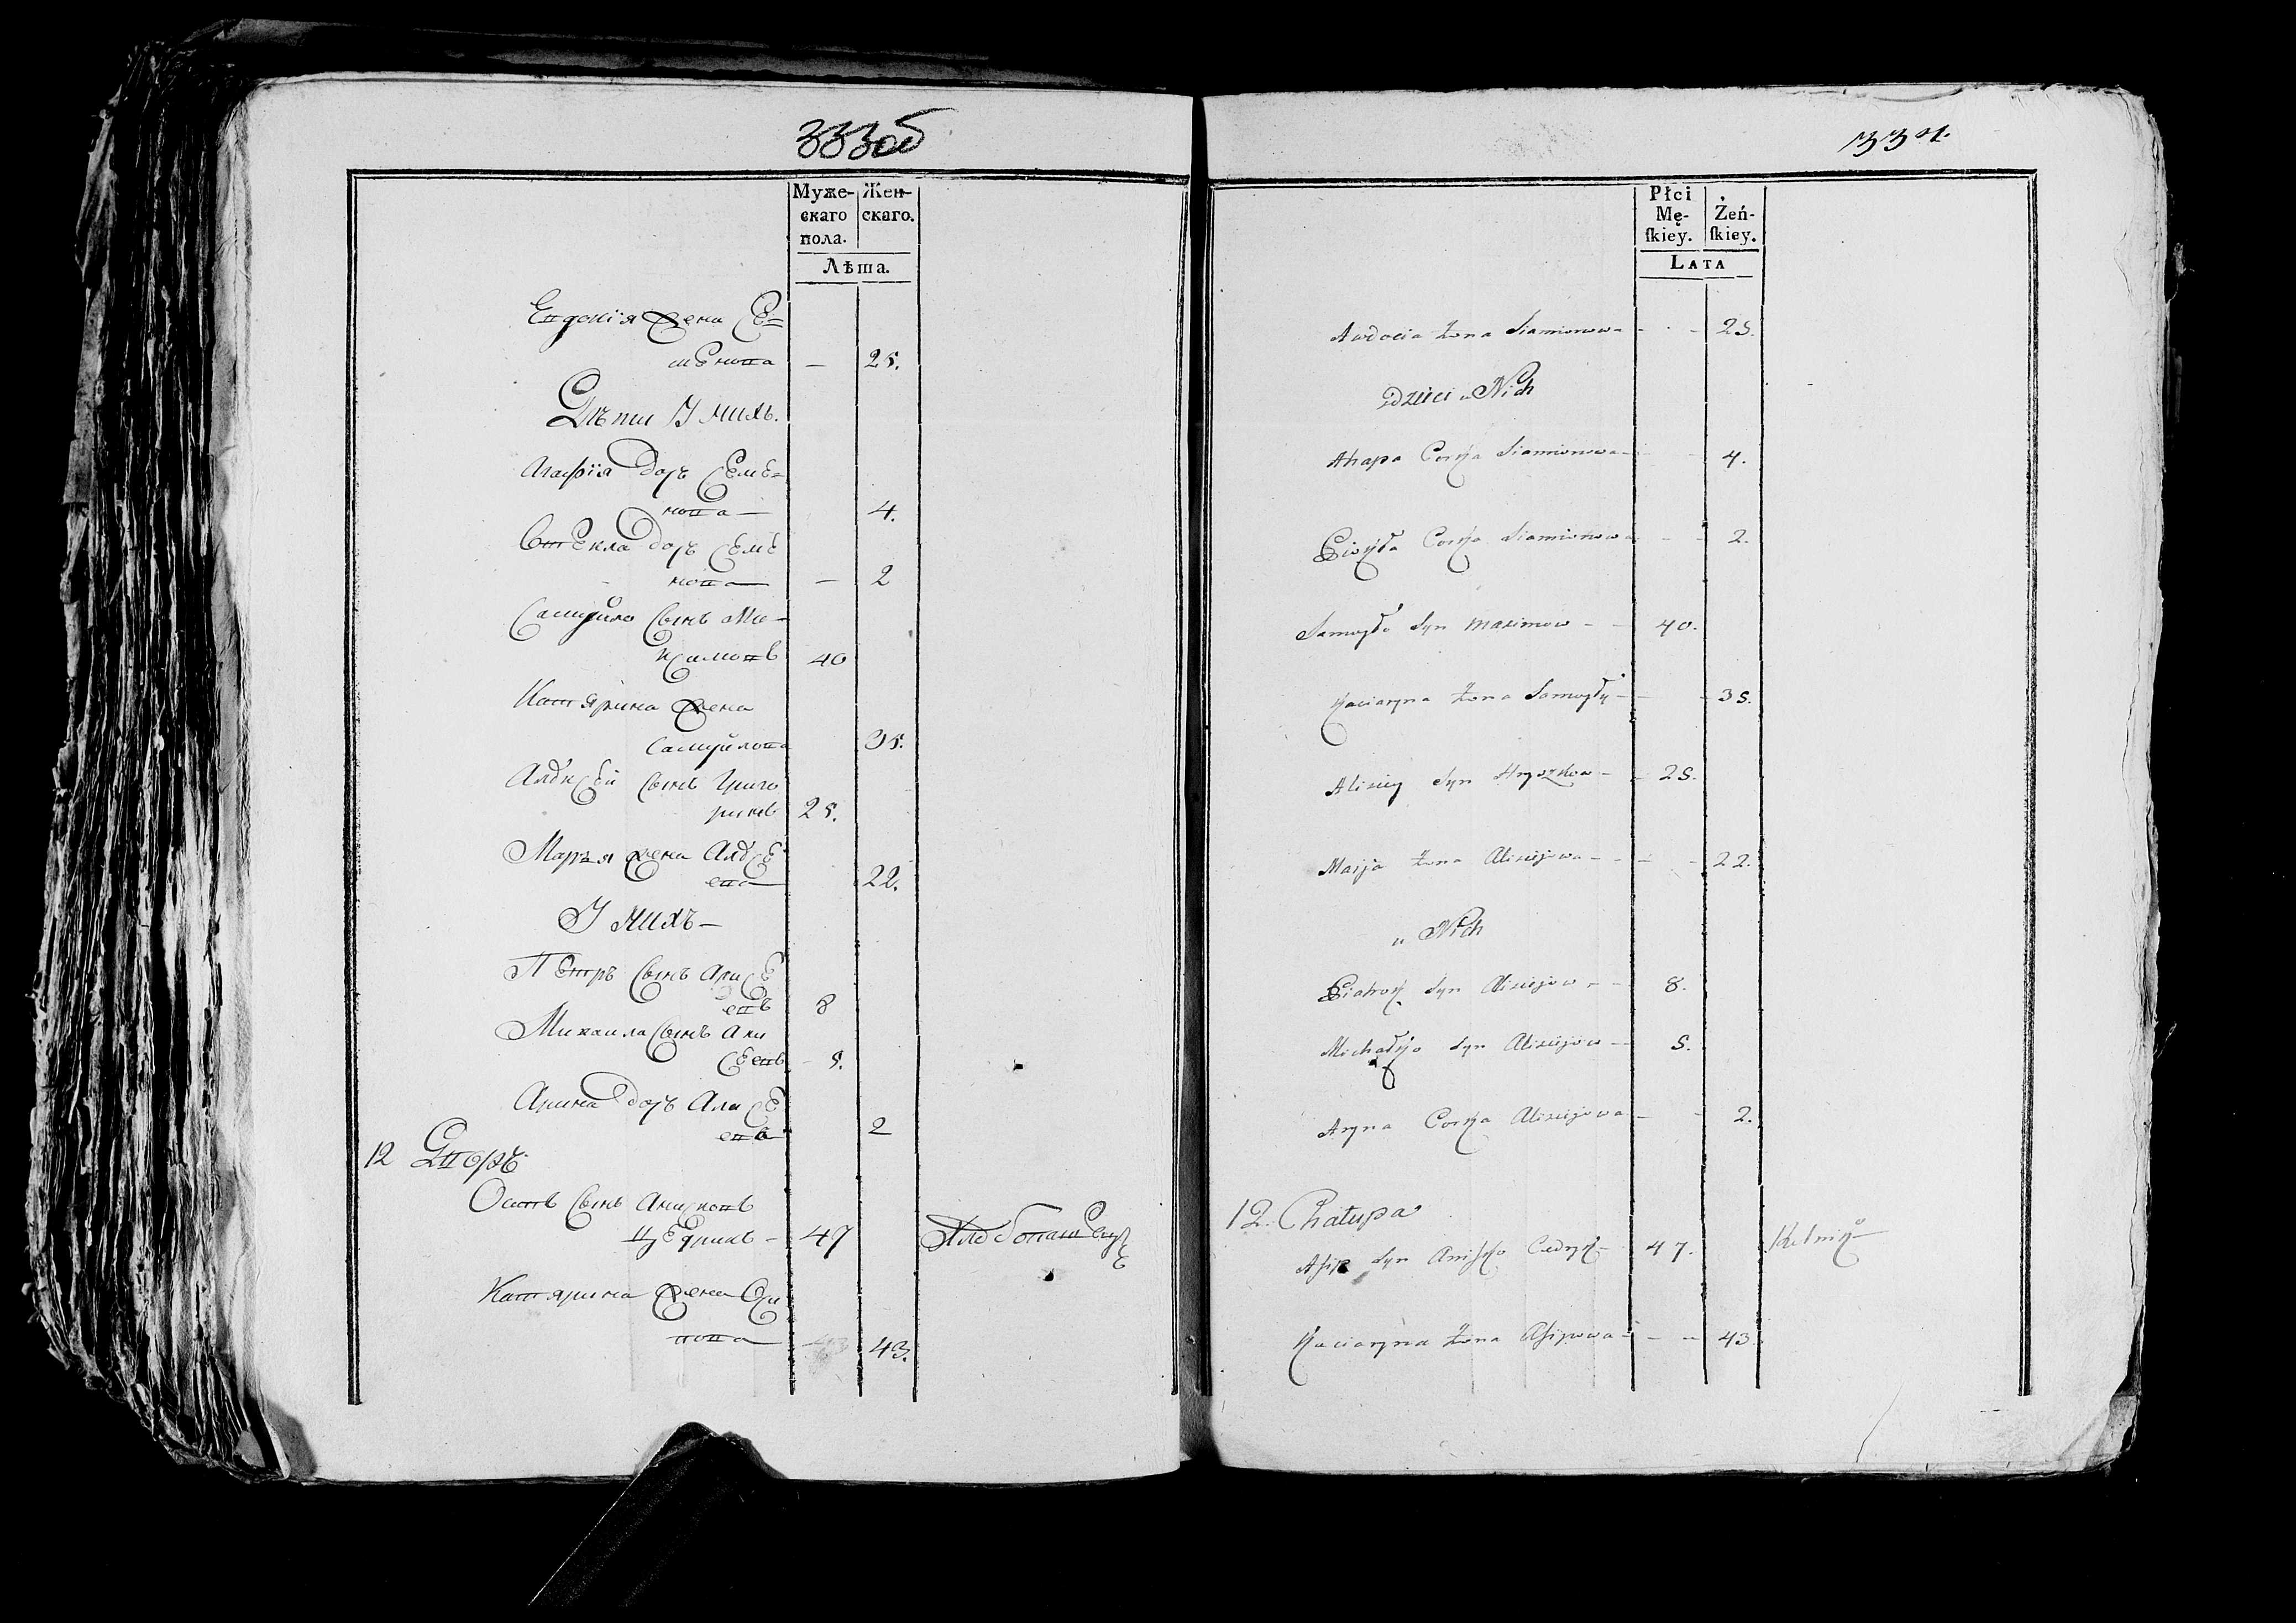 333об
Муже-
скаго
пола.
Жен-
скаго.
Лѣта.
Евдокія жена Се=
менова — 25.
Дѣти У нихъ.
Агафія дочъ Семе=
нова — 4.
дочъ Семе
нова — 2
Самуйло сынъ Ма-
ксимовъ 40
Катярина жена
Самуйлова 35.
Алексей сынъ Григо
ривъ 25.
Маръя жена Алексе
ева 22.
У нихъ —
Петръ сынъ Алисе
евъ 8
Михаила сынъ Али
сеевъ — 5.
Арина дочъ Алисе
ева 2
12 Дворъ
Осипъ сынъ Анисковъ
Цедрикъ — 47
Катярина жена Оси
пова — 43.
334.
Płci
Mę-
ſkiey.
Żeń-
ſkiey.
LATA
Audocia Żona Siamionowa - - 25.
Dzieci u Nich
Ahapa Corka Siamionowa - - 4.
Corka Siamionowa - - 2.
Samuyło Syn Maximow - - 40.
Kaciaryna Żona Samuyły - - 35.
Alisiey Syn Hryszkow - - 25.
Maryja Żona Alisiejowa - - - 22.
u Nich
Piatrok Syn Alisiejow - - 8.
Michałko Syn Alisiejow - - 5.
Aryna Corka Alisiejowa - - 2.
12. Chałupa
Asip Syn Anisko Cedryk - 47.
Kaciaryna Żona Asipowa - - - 43